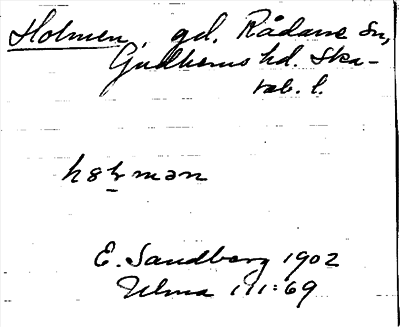 Holmen, gd. Rådane sn,
Gudhems hd. Ska-
rab. l.
hɷlmən
E. Sandberg 1902
Ulma 111:69